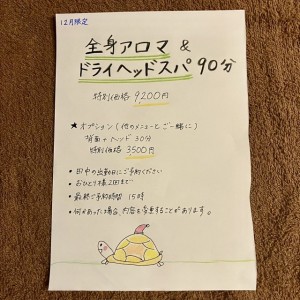 12月限定
全身アロマ &
ドライヘッドスパ 90分
特別価格 9200円
★ オプション (他のメニューとご一緒に)
背面 + ヘッド 30分
特別価格 3500円
• 田中の出勤日にご予約ください
• おひとり様2回まで
• 最終ご予約時間 15時
• 何かあった場合、内容を変更することがあります。